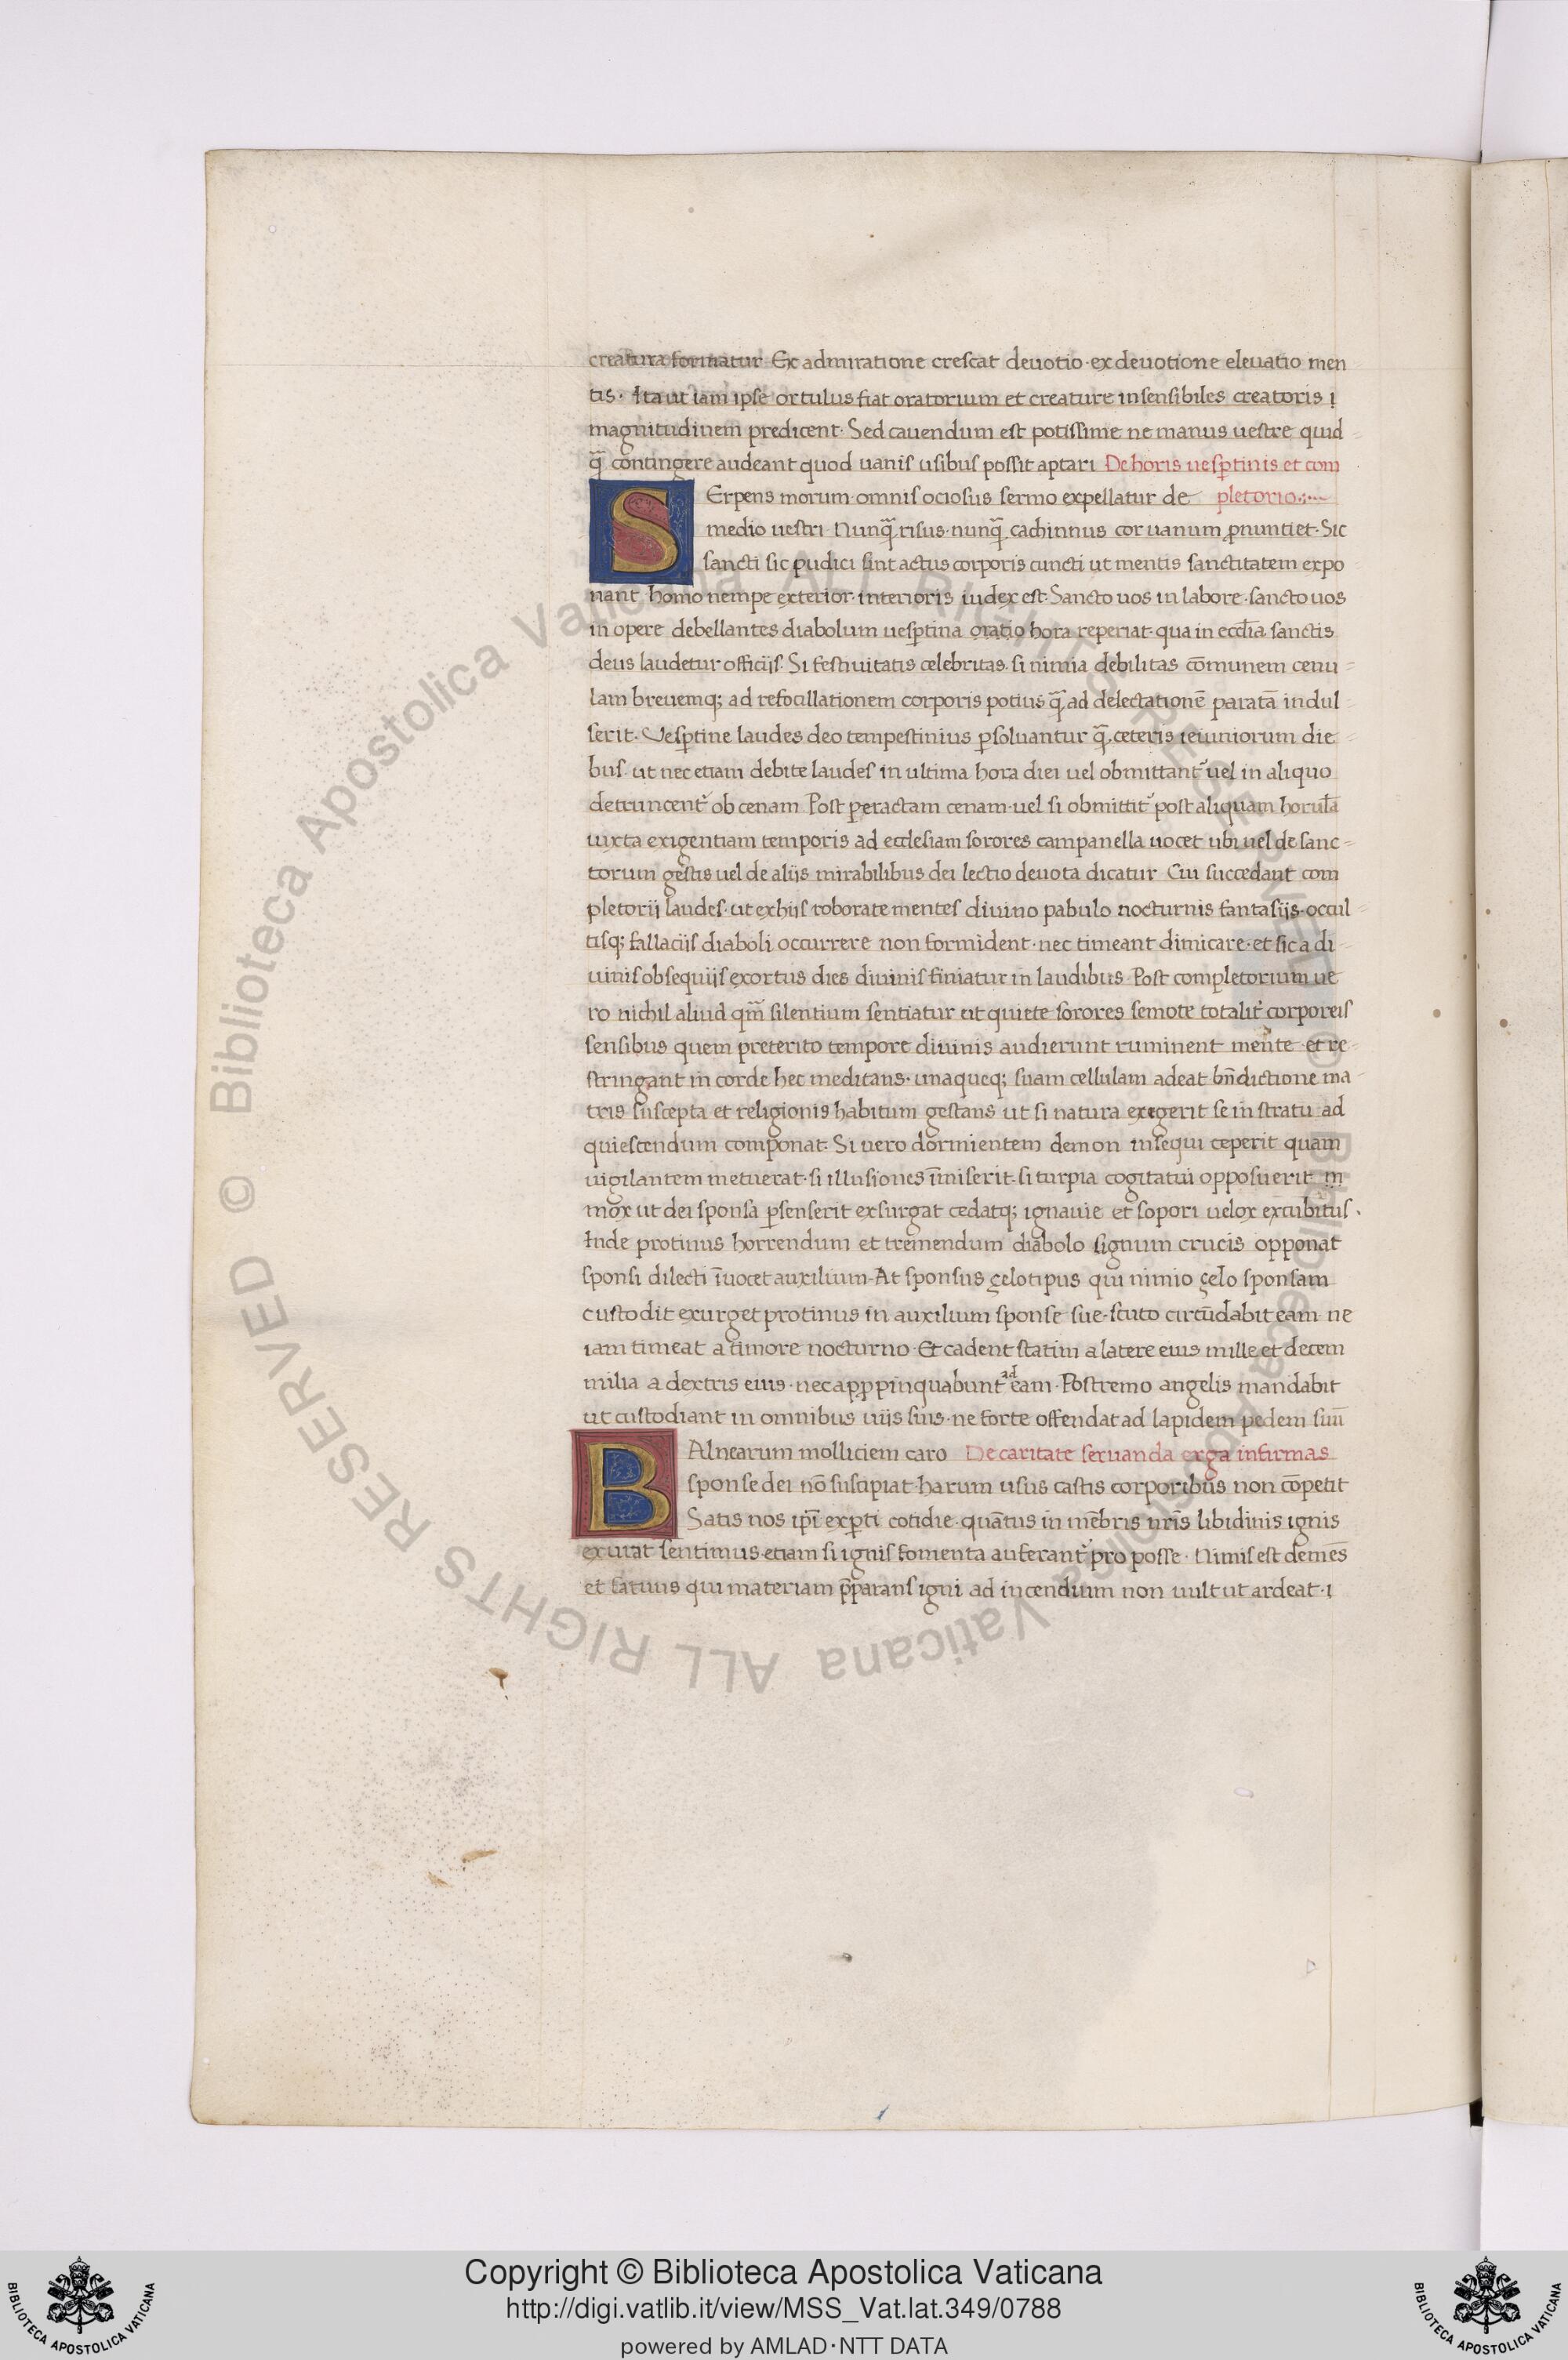 creatura formatur Ex admiratione crescat deuotio · ex deuotione eleuatio men
tis · Ita ut iam ipse ortulus fiat oratorium et creature insensibiles creatoris i
magnitudinem predicent · Sed cauendum est potissime ne manus uestre quid-
q̃ contingere audeant quod uanis usibus possit aptari De horis uesptinis et com
SErpens morum omnis ociosus sermo expellatur de pletorio
medio uestri · Nunq̃ risus · nunq̃ cachinnus cor uanum pnuntiet · Sic
sancti sic pudici sint actus corporis cuncti ut mentis sanctitatem expo
nant homo nempe exterior · interioris iudex est · Sancto uos in labore · sancto uos
in opere debellantes diabolum uesptina oratio hora reperiat · qua in eccl̃ia sanctis
deus laudetur officijs · Si festiuitatis celebritas · si nimia debilitas cōmunem cenu=
lam breuemq; ad refocillationem corporis potius q̃ ad delectationē paratā indul-
serit · Vesptine laudes deo tempestinius psoluantur q̃ ceteris ieiuniorum die-
bus · ut nec etiam debite laudes in ultima hora diei uel obmittant᷑ uel in aliquo
detruncent᷑ ob cenam Post peractam cenam · uel si obmittit᷑ post aliquam horulā
iuxta exigentiam temporis ad ecclesiam sorores campanella uocet ubi uel de sanc=
torum gestis uel de alijs mirabilibus dei lectio deuota dicatur Cui succedant com
pletorij laudes · ut ex hijs roborate mentes diuino pabulo nocturnis fantasijs · occul-
tisq; fallacijs diaboli occurrere non formident · nec timeant dimicare · et sic a di-
uinis obsequijs exortus dies diuinis finiatur in laudibus · Post completorium ue
ro nichil aliud qm̃ silentium sentiatur ut quiete sorores semote totalit᷑ corporeis
sensibus quem preterito tempore diuinis audierunt ruminent mente · et re-
stringant in corde hec meditans · unaqueq; suam cellulam adeat bn̄dictione ma-
tris suscepta et religionis habitum gestans ut si natura exegerit se in stratu ad
quiescendum componat · Si uero dormientem demon insequi ceperit quam
uigilantem metuerat · si illusiones īmiserit · si turpia cogitatui opposuerit m
mox ut dei sponsa psenserit exsurgat cedatq; ignauie et sopori uelox excubitus ·
Inde protinus horrendum et tremendum diabolo signum crucis opponat
sponsi dilecti īuocet auxilium · At sponsus çelotipus qui nimio çelo sponsam
custodit exurget protinus in auxilium sponse sue · scuto circūdabit eam ne
iam timeat a timore nocturno · Et cadent statim a latere eius mille et decem
milia a dextris eius · nec appropinquabunt ad eam · Postremo angelis mandabit
ut custodiant in omnibus uijs suis · ne forte offendat ad lapidem pedem suū
BAlnearum molliciem caro De caritate seruanda erga infirmas
sponse dei nō suscipiat · harum usus castis corporibus non cōpetit
Satis nos ipī expti cotidie · quātus in mēbris nr̄is libidinis ignis
exurat sentimus · etiam si ignis fomenta auferant᷑ pro posse · Nimis est demēs
et fatuus qui materiam p̄parans igni ad incendium non uult ut ardeat · i
© Biblioteca Apostolica Vaticana ALL RIGHTS RESERVED © Biblioteca Apostolica Vaticana ALL RIGHTS RESERVED
Copyright © Biblioteca Apostolica Vaticana
http://digi.vatlib.it/view/MSS_Vat.lat.349/0788
powered by AMLAD·NTT DATA
BIBLIOTECA APOSTOLICA VATICANA
BIBLIOTECA APOSTOLICA VATICANA